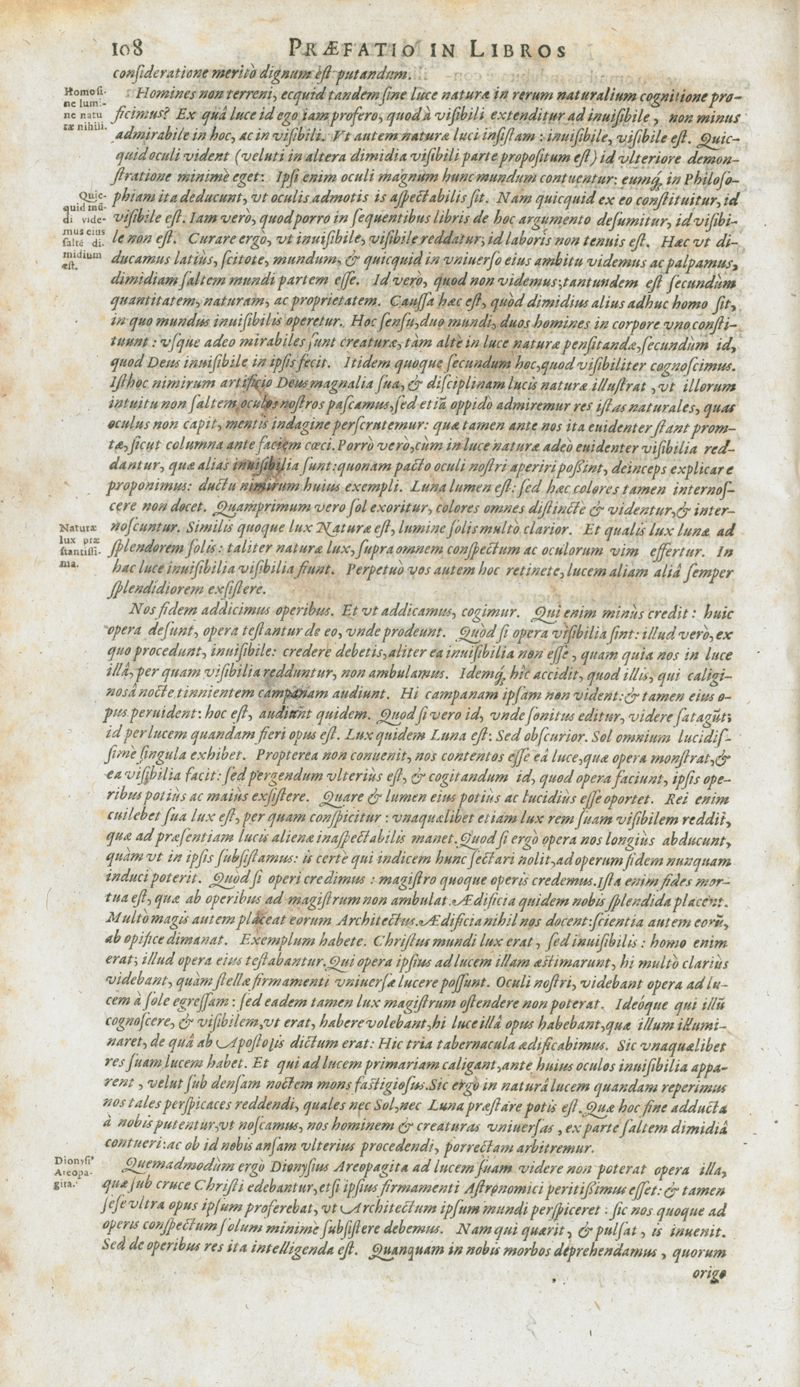 108 PRÆFATIO IN LIBROS
consideratione meritò dignum est putandum.
Homo si-
ne lumi-
ne natu
ræ nihili.
Homines non terreni, ecquid tandem sine luce naturæ in rerum naturalium cognitione pro-
ficimus? Ex quâ luce id ego iam profero, quod à visibili extenditur ad inuisibile, non minus
admirabile in hoc, ac in visibili. Vt autem naturæ luci insistam: inuisibile, visibile est. Quic-
quid oculi vident (veluti in altera dimidia visibili parte propositum est) id vlteriore demon-
stratione minimè eget: Ipsi enim oculi magnum hunc mundum contuentur: eumq́, in Philoso-
Quic-
quid mū-
di vide-
mus eius
saltē di-
midium
est.
phiam ita deducunt, vt oculis admotis is aspectabilis sit. Nam quicquid ex eo constituitur, id
visibile est. Iam verò, quod porro in sequentibus libris de hoc argumento desumitur, id visibi-
le non est. Curare ergò, vt inuisibile, visibile reddatur, id laboris non tenuis est. Hæc vt di-
ducamus latiùs, scitote, mundum, & quicquid in vniuerso eius ambitu videmus ac palpamus,
dimidiam saltem mundi partem esse. Id verò, quod non videmus, tantundem est secundùm
quantitatem, naturam, ac proprietatem. Caussa hæc est, quòd dimidius alius adhuc homo sit,
in quo mundus inuisibilis operetur. Hoc sensu, duo mundi, duos homines in corpore vno consti-
tuunt: vsque adeo mirabiles sunt creaturæ, tàm altè in luce naturæ pensitandæ, secundùm id,
quod Deus inuisibile in ipsis fecit. Itidem quoque secundum hoc, quod visibiliter cognoscimus.
Isthoc nimirum artificio Deus magnalia sua, & disciplinam lucis naturæ illustrat, vt illorum
intuitu non saltem oculos nostros pascamus, sed etiā oppidò admiremur res istas naturales, quas
oculus non capit, mentis indagine perscrutemur: quæ tamen ante nos ita euidenter stant prom-
tæ, sicut columna ante faciem cæci. Porrò verò, cùm in luce naturæ adeò euidenter visibilia red-
dantur, quæ alias inuisibilia sunt: quonam pacto oculi nostri aperiri poßint, deinceps explicare
proponimus: ductu nimirum huius exempli. Luna lumen est: sed hæc colores tamen internos-
cere non docet. Quamprimum vero sol exoritur, colores omnes distinctè & videntur, & inter-
Naturæ
lux præ
stantissi-
ma.
noscuntur. Similis quoque lux Naturæ est, lumine solis multò clarior. Et qualis lux lunæ ad
splendorem solis: taliter naturæ lux, supra omnem conspectum ac oculorum vim effertur. In
hac luce inuisibilia visibilia fiunt. Perpetuò vos autem hoc retinete, lucem aliam aliâ semper
splendidiorem exsistere.
Nos fidem addicimus operibus. Et vt addicamus, cogimur. Qui enim minùs credit: huic
opera desunt, opera testantur de eo, vnde prodeunt. Quòd si opera visibilia sint: illud verò, ex
quo procedunt, inuisibile: credere debetis, aliter ea inuisibilia non esse, quam quia nos in luce
illâ, per quam visibilia redduntur, non ambulamus. Idemq́, hîc accidit, quod illis, qui caligi-
nosâ nocte tinnientem campanam audiunt. Hi campanam ipsam non vident: & tamen eius o-
pus peruident: hoc est, audiunt quidem. Quod si vero id, vnde sonitus editur, videre satagūt;
id per lucem quandam fieri opus est. Lux quidem Luna est: Sed obscurior. Sol omnium lucidis-
simè singula exhibet. Propterea non conuenit, nos contentos esse eâ luce, quæ opera monstrat, &
ea visibilia facit: sed pergendum vlteriùs est, & cogitandum id, quod opera faciunt, ipsis ope-
ribus potiùs ac maiùs exsistere. Quare & lumen eius potiùs ac lucidiùs esse oportet. Rei enim
cuilebet sua lux est, per quam conspicitur: vnaquælibet etiam lux rem suam visibilem reddit,
quæ ad præsentiam lucis alienæ inaspectabilis manet. Quod si ergò opera nos longiùs abducunt,
quàm vt in ipsis subsistamus: is certè qui indicem hunc sectari nolit, ad operum fidem nunquam
induci poterit. Quòd si operi credimus: magistro quoque operis credemus. Ista enim fides mor-
tua est, quæ ab operibus ad magistrum non ambulat. Ædificia quidem nobis splendida placent.
Multò magis autem placeat eorum Architectus. Ædificia nihil nos docent: scientia autem eorū,
ab opifice dimanat. Exemplum habete. Christus mundi lux erat, sed inuisibilis: homo enim
erat; illud opera eius testabantur. Qui opera ipsius ad lucem illam æstimarunt, hi multò clariùs
videbant, quàm stellæ firmamenti vniuersæ lucere possunt. Oculi nostri, videbant opera ad lu-
cem à sole egressam: sed eadem tamen lux magistrum ostendere non poterat. Ideóque qui illū
cognoscere, & visibilem, vt erat, habere volebant, hi luce illâ opus habebant, quæ illum illumi-
naret, de quâ ab Apostolis dictum erat: Hic tria tabernacula ædificabimus. Sic vnaquælibet
res suam lucem habet. Et qui ad lucem primariam caligant, ante huius oculos inuisibilia appa-
rent, velut sub densam noctem mons fastigiosus. Sic ergò in naturâ lucem quandam reperimus
nos tales perspicaces reddendi, quales nec Sol, nec Luna præstare potis est. Quæ hoc fine adducta
à nobis putentur, vt noscamus, nos hominem & creaturas vniuersas, ex parte saltem dimidiâ
contueri: ac ob id nobis ansam vlterius procedendi, porrectam arbitremur.
Dionysiꝰ
Areopa-
gita.
Quemadmodùm ergò Dionysius Areopagita ad lucem suam videre non poterat opera illa,
quæ sub cruce Christi edebantur, etsi ipsius firmamenti Astronomici peritißimus esset: & tamen
sese vltra opus ipsum proferebat, vt Architectum ipsum mundi perspiceret: sic nos quoque ad
operis conspectum solum minimè subsistere debemus. Nam qui quærit, & pulsat, is inuenit.
Sed de operibus res ita intelligenda est. Quanquam in nobis morbos deprehendamus, quorum
origo